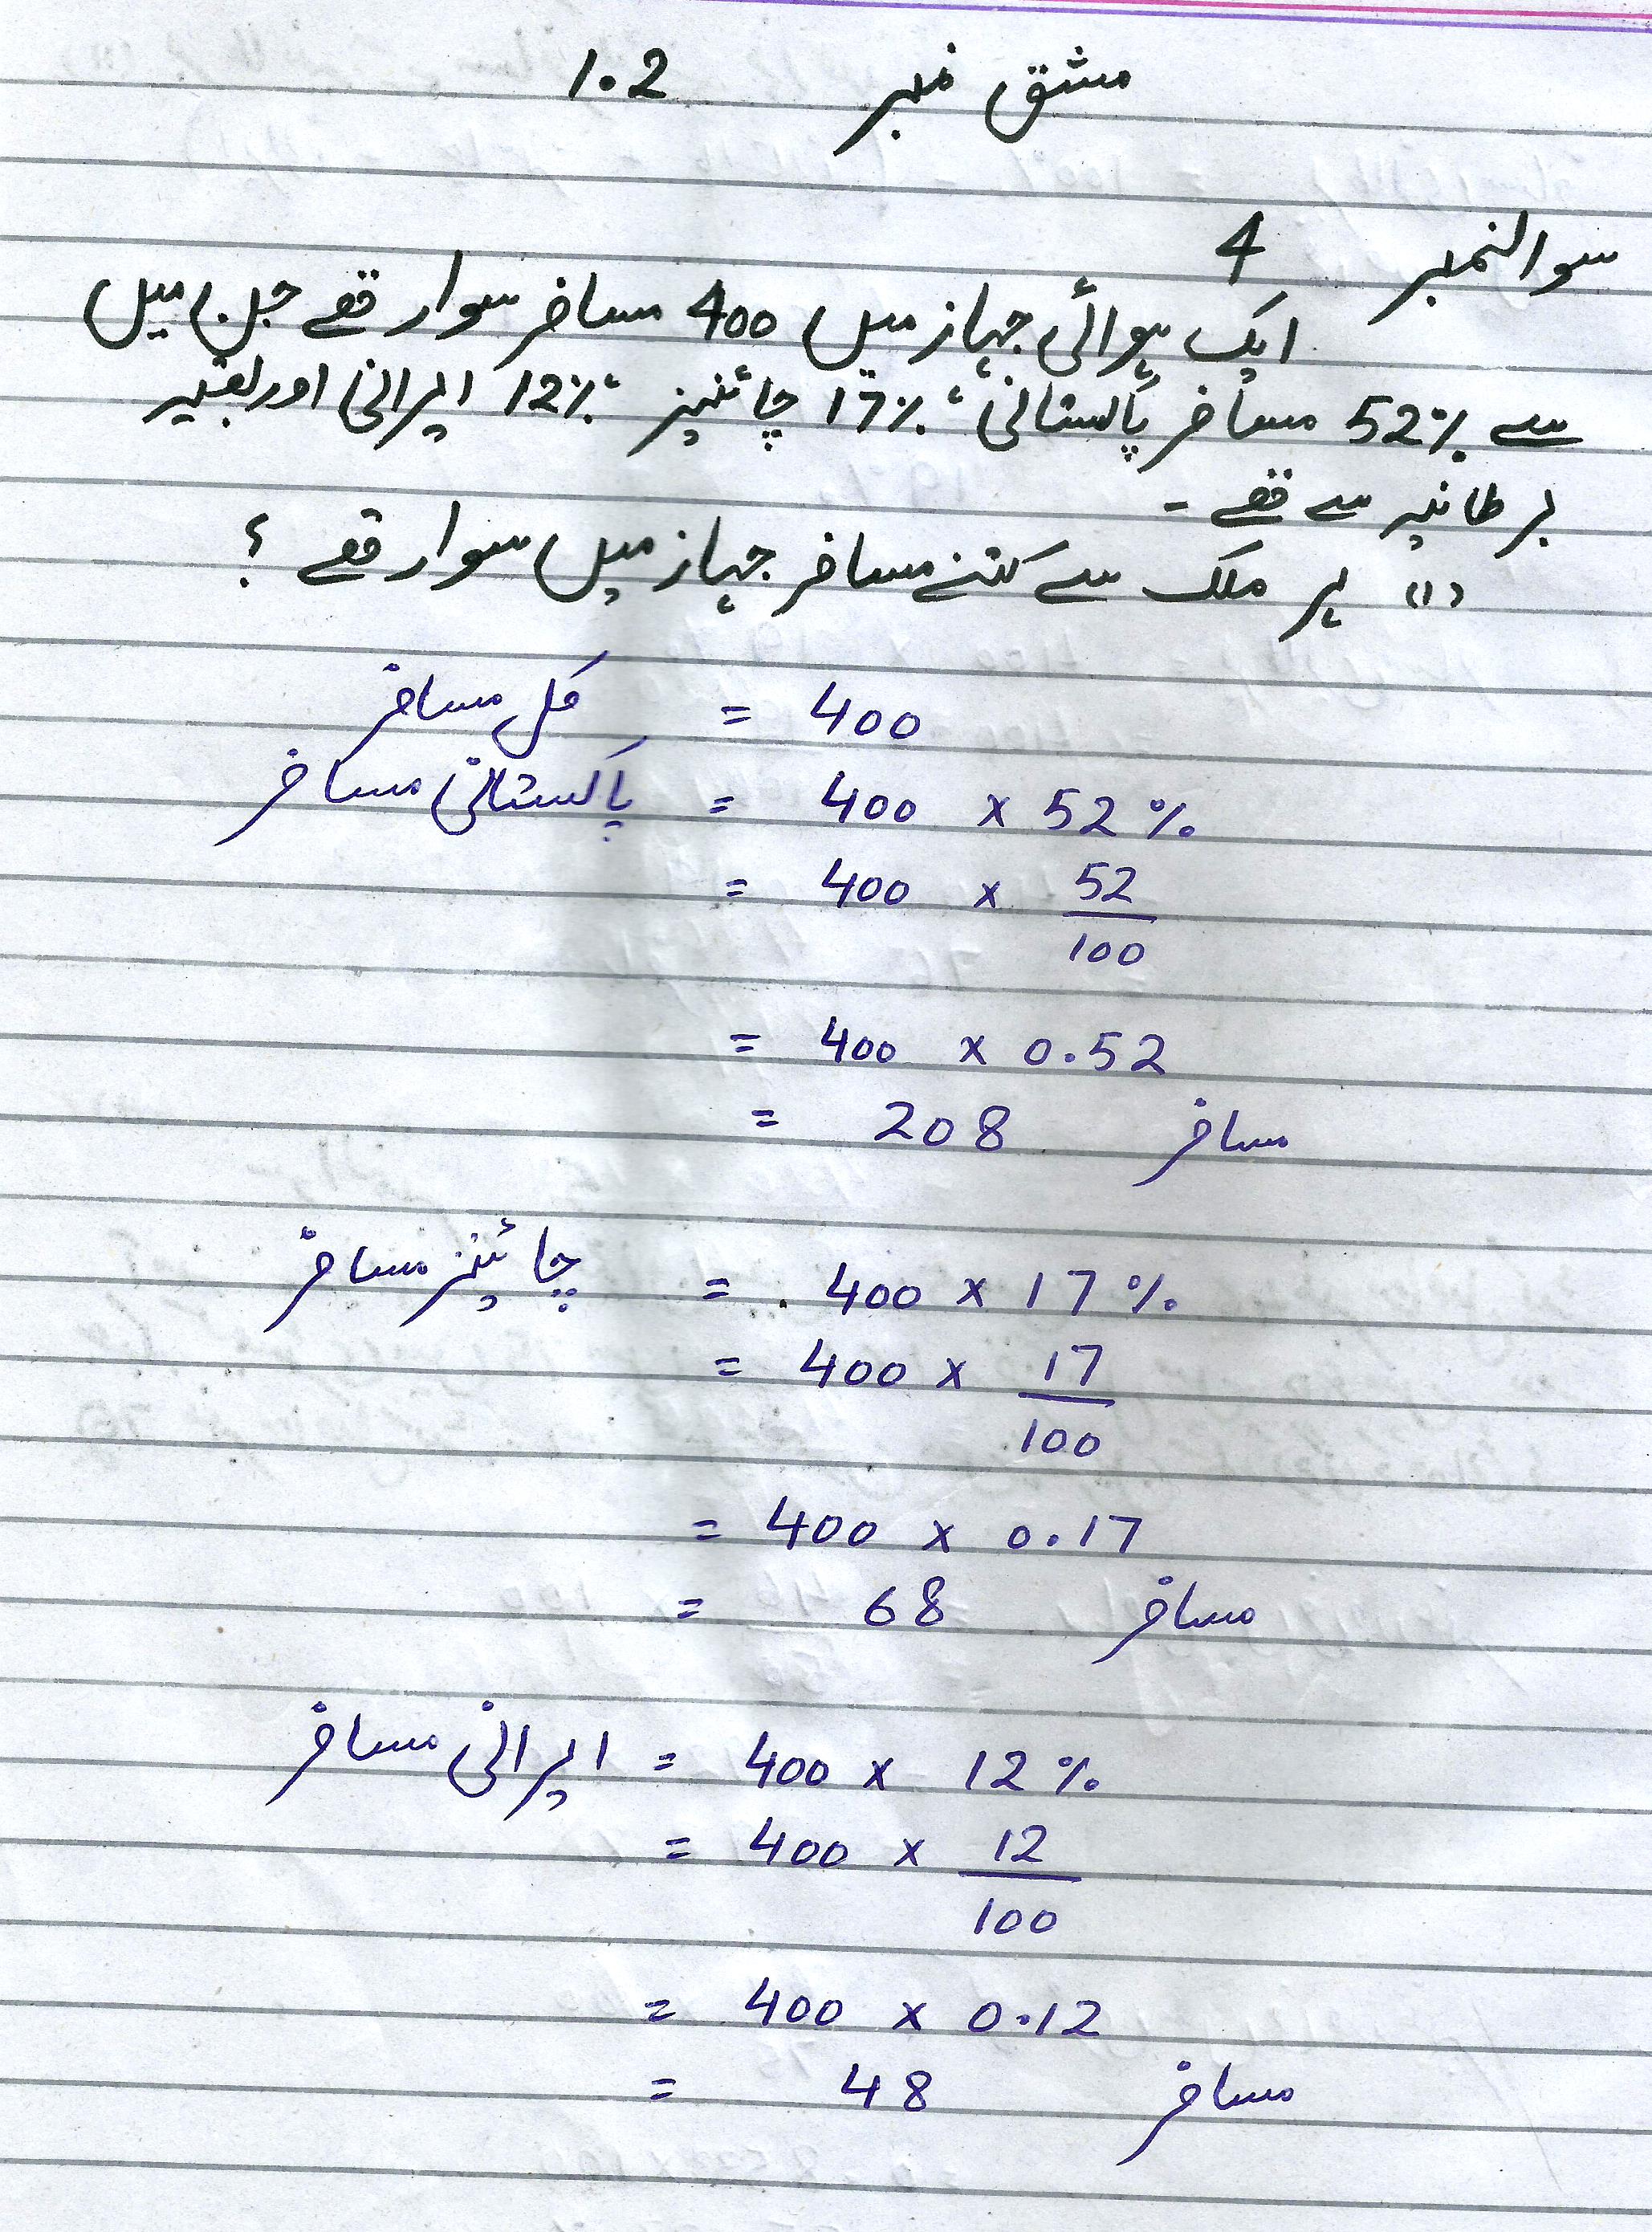 مشق نمبر 1.2
سوالنمبر 4
ایک ہوائی جہاز میں 400 مسافر سوار تھے جن میں
سے 52% مسافر پاکستانی، 17% چائنیز، 12% ایرانی اور بقیہ
برطانیہ سے تھے۔
(i) ہر ملک سے کتنے مسافر جہاز میں سوار تھے؟
کل مسافر = 400
پاکستانی مسافر = 400 x 52%
= 400 x 52/100
= 400 x 0.52
= 208 مسافر
چائنیز مسافر = 400 x 17%
= 400 x 17/100
= 400 x 0.17
= 68 مسافر
ایرانی مسافر = 400 x 12%
= 400 x 12/100
= 400 x 0.12
= 48 مسافر